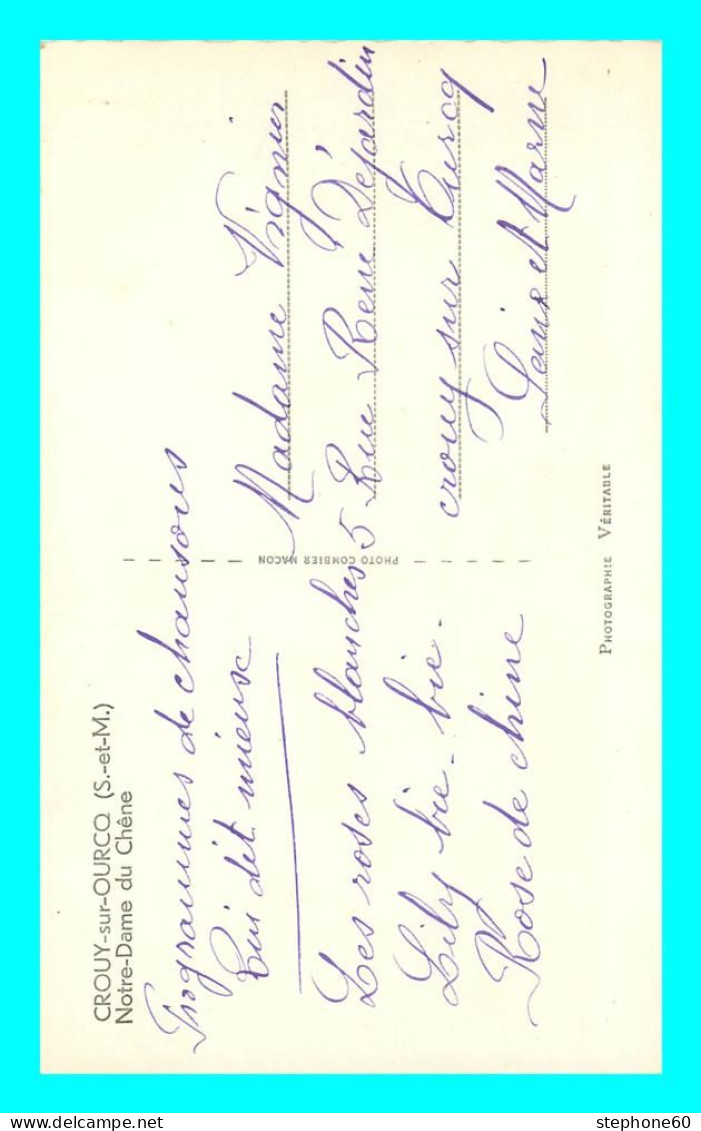 CROUY-sur-OURCQ (S.-et-M.)
Notre-Dame du Chêne
Programmes de chansons
Qui dit mieux
Les roses blanches
Lily bie-bie.
Rose de chine
PHOTO COMBIER MACON
Madame Vignier
5 Rue René Déjardin
crouy sur Ourcq
Seine et Marne
PHOTOGRAPHIE VÉRITABLE
stephone60